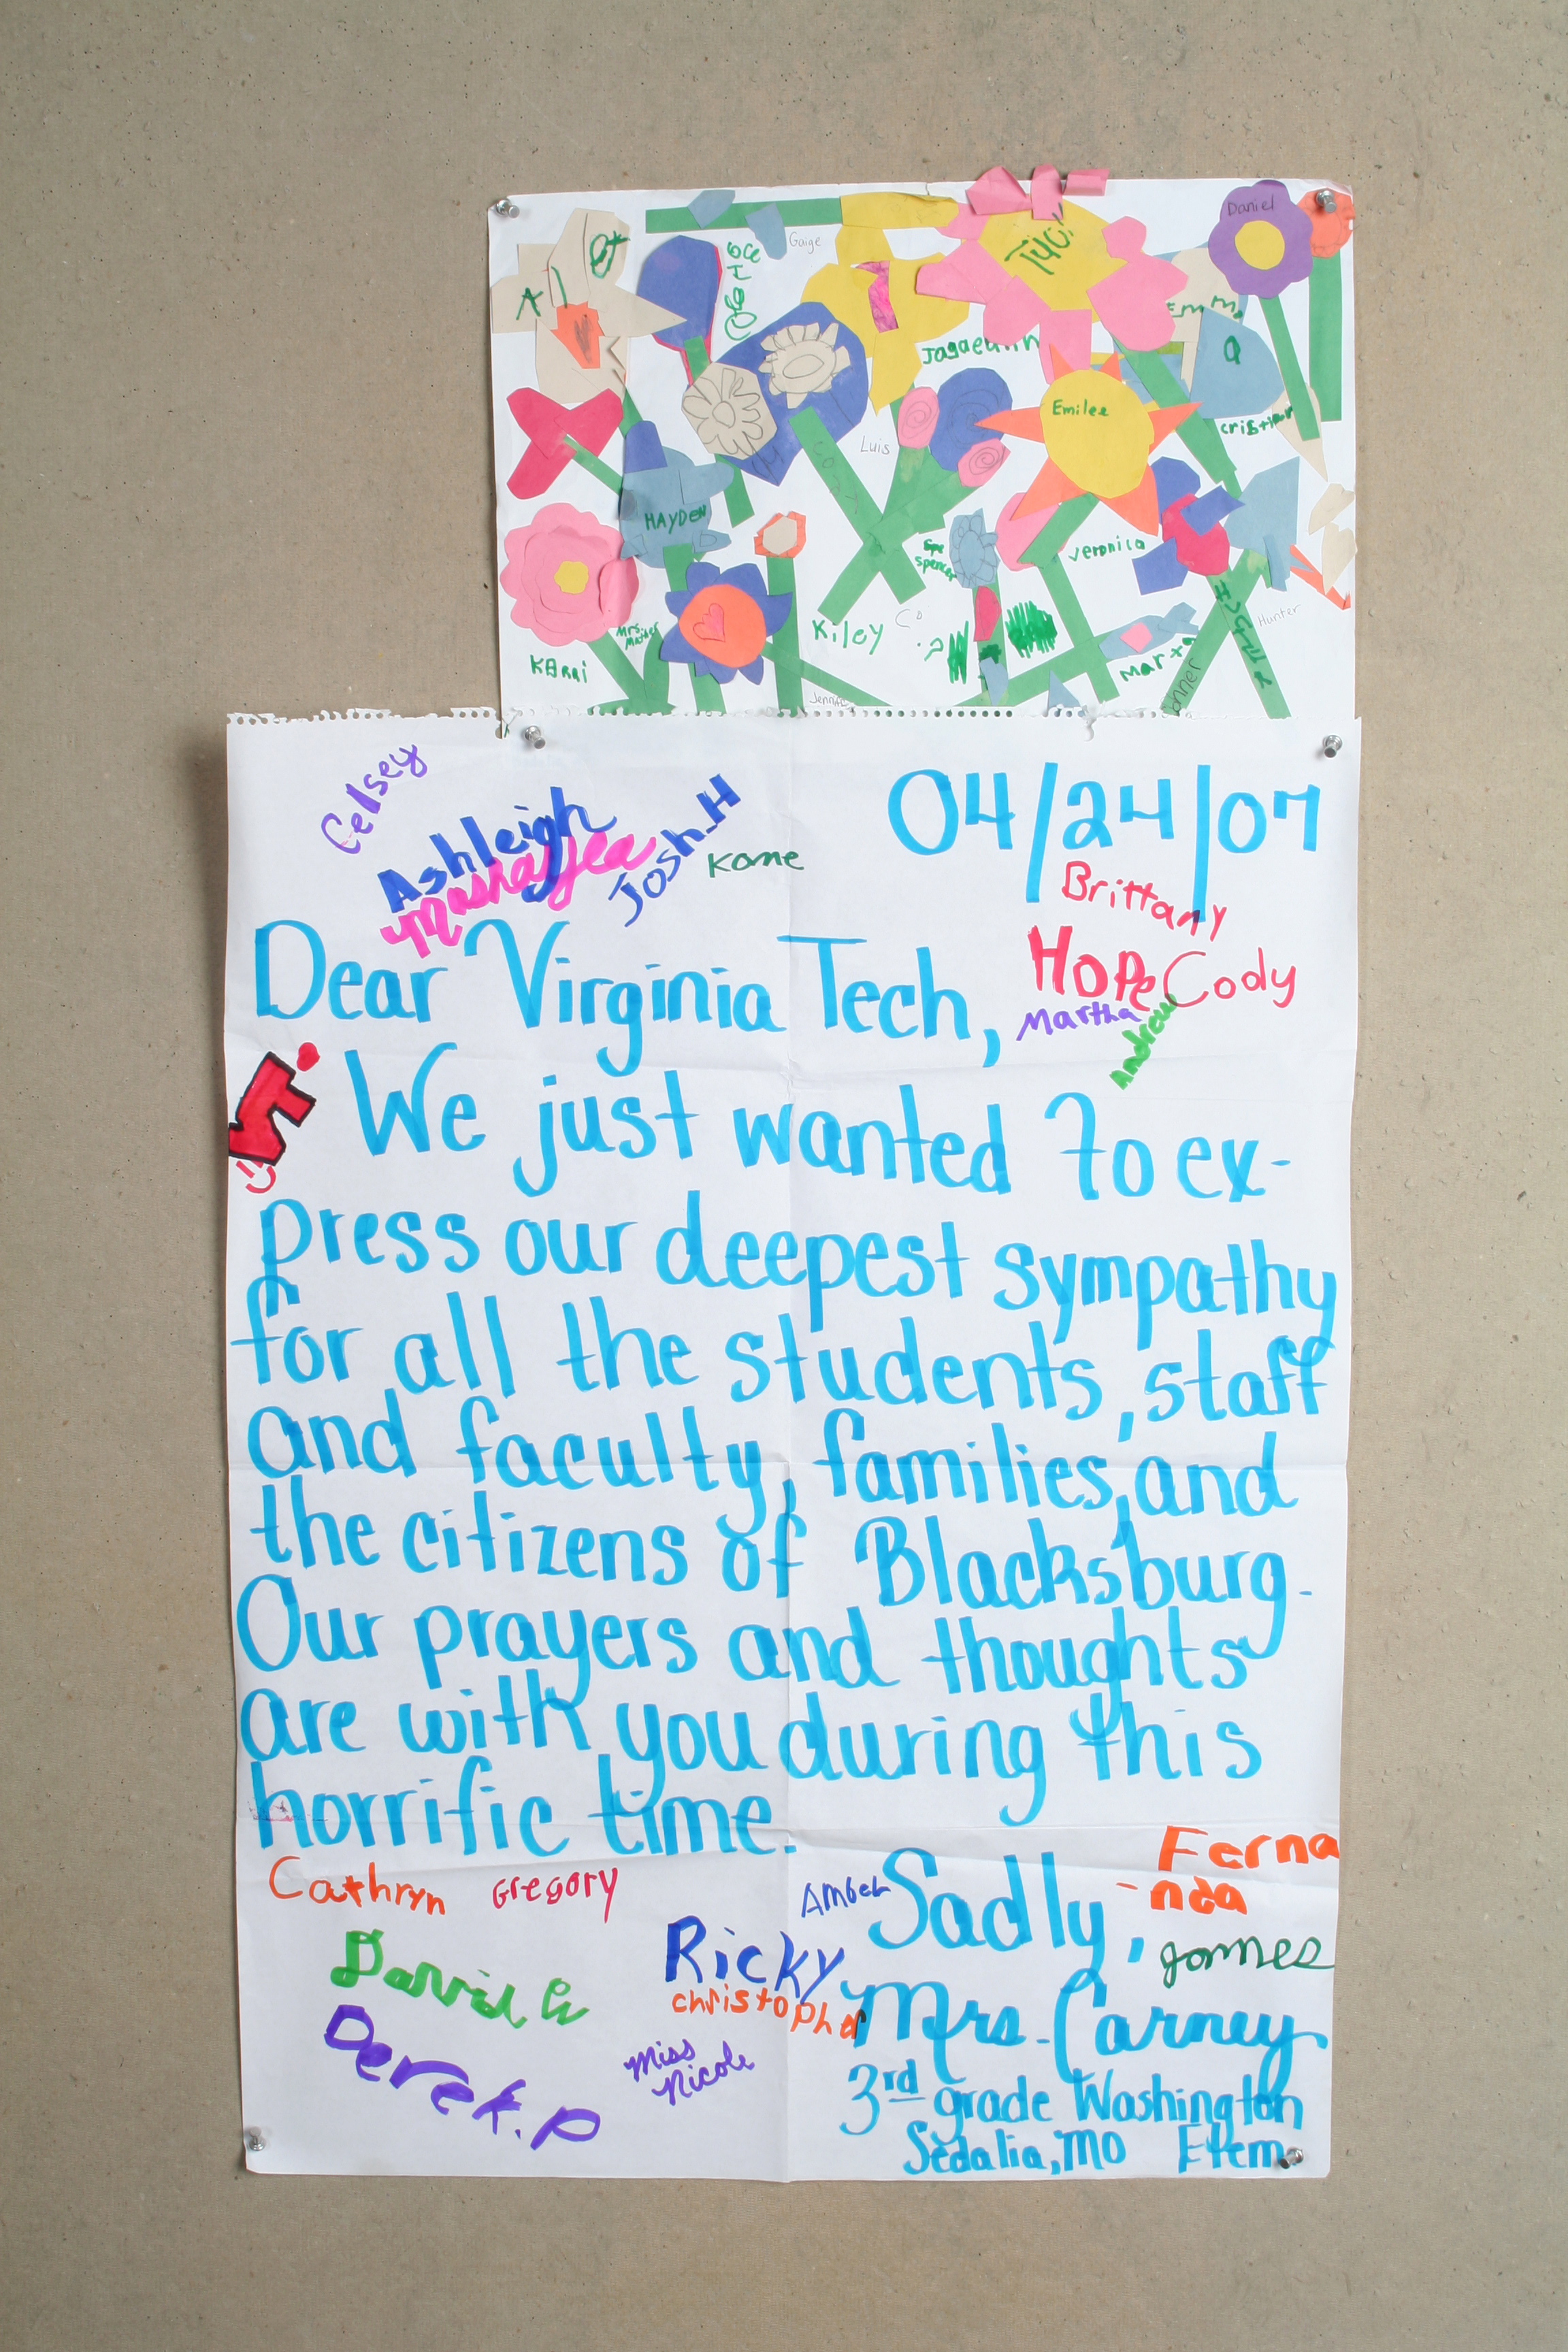 Daniel
Gaige
Emma
Jaqaelinn
Emilee
cristian
Luis
HAYDEN
veronica
spencer
Hunter
Kiley
Marta
Jenni
Celsey
04/24/07
Ashleigh
Josh H
Kame
Brittany
Dear Virginia Tech,
Hope Cody
Martha
Andrew
We just wanted to ex-
press our deepest sympathy
for all the students, staff
and faculty, families, and
the citizens of Blacksburg.
Our prayers and thoughts
are with you during this
horrific time.
Cathryn Gregory
Amber
Sadly,
Ferna
-nda
James
David G
Ricky
christopher
Mrs. Carney
Derek.P
Miss
Nicole
3rd grade Washington
Sedalia, MO Elem.